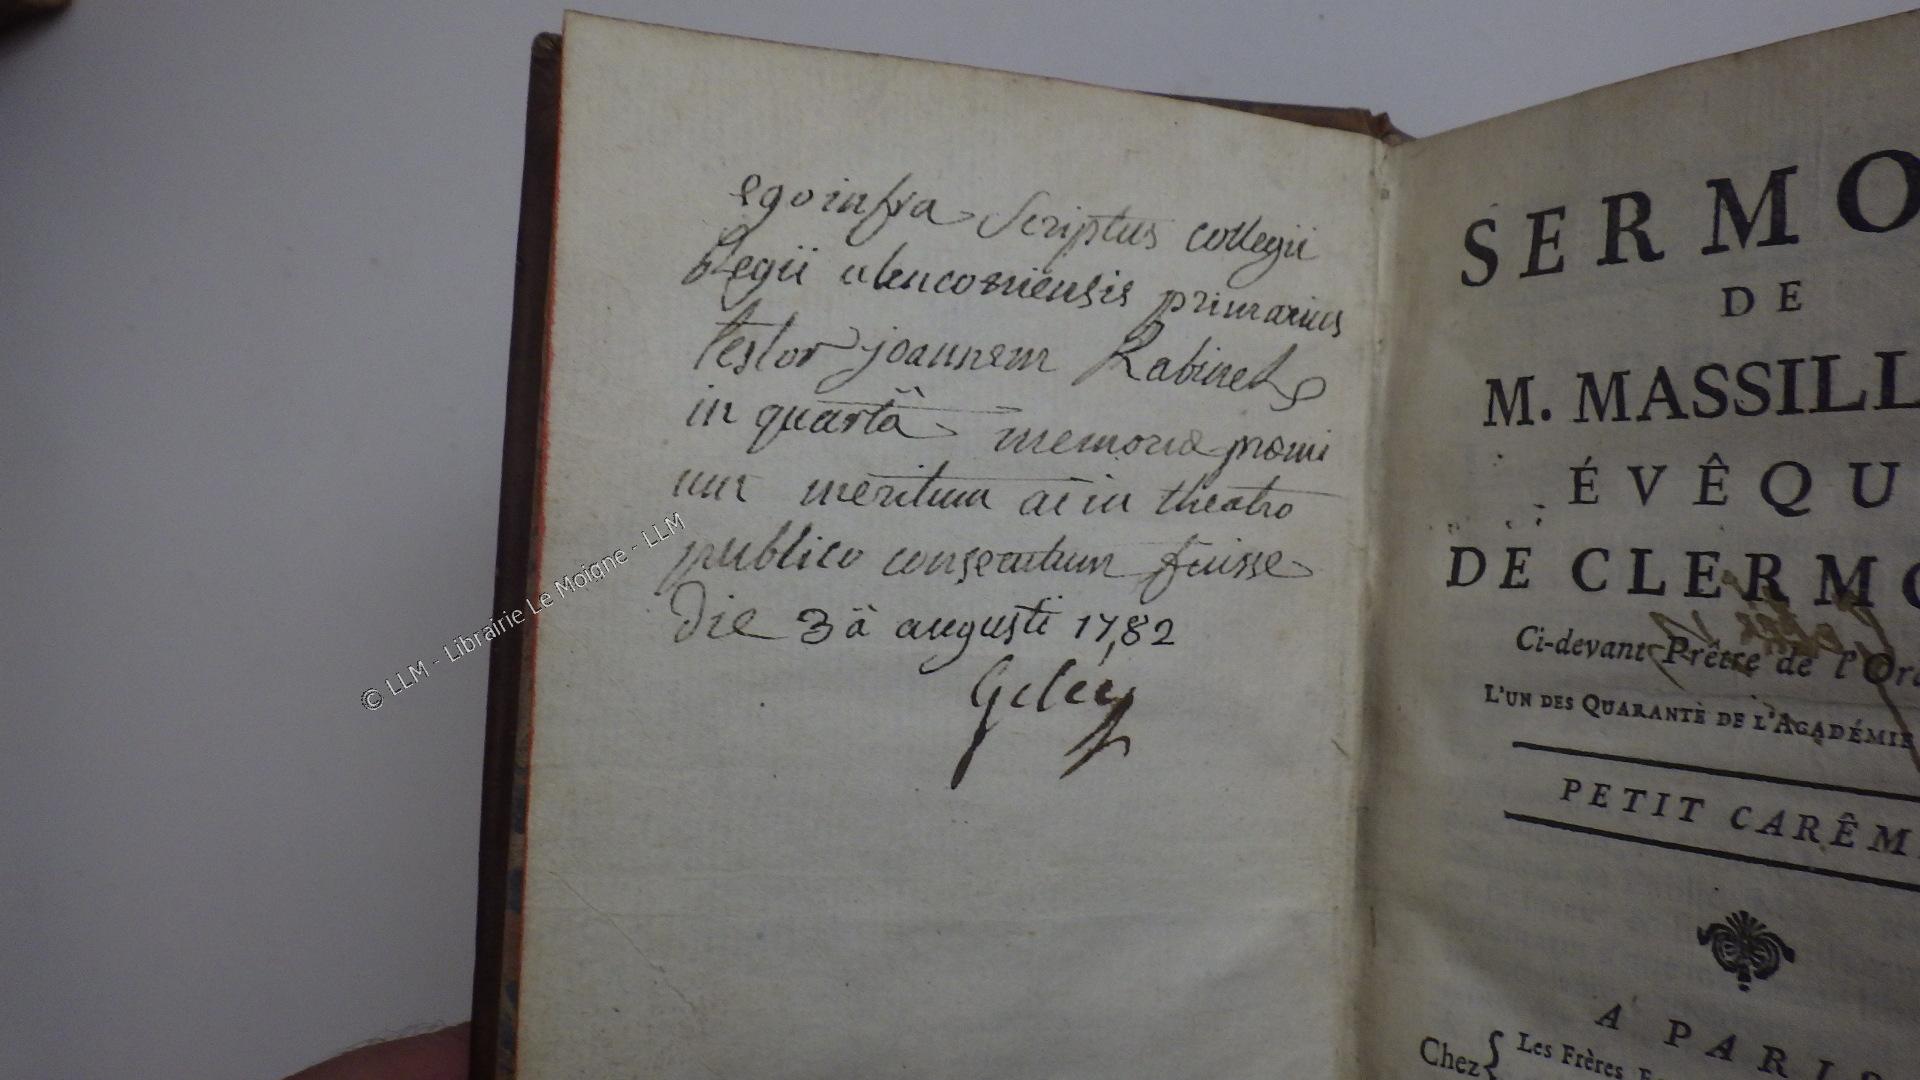 ego infra Scriptus collegii
Regii alenconiensis primarius
testor joannem Rabinel
in quartâ memoriæ præmi
um meritum ac in theatro
publico consecutum fuisse
die 3â augusti 1782
Geley
SERMO
DE
M. MASSILL
ÉVÊQU
DE CLERMO
Ci-devant Prêtre de l'Ora
L'UN DES QUARANTE DE L'ACADÉMIE
PETIT CARÊM
A PARIS
Chez { Les Frères E
© LLM - Librairie Le Moigne - LLM